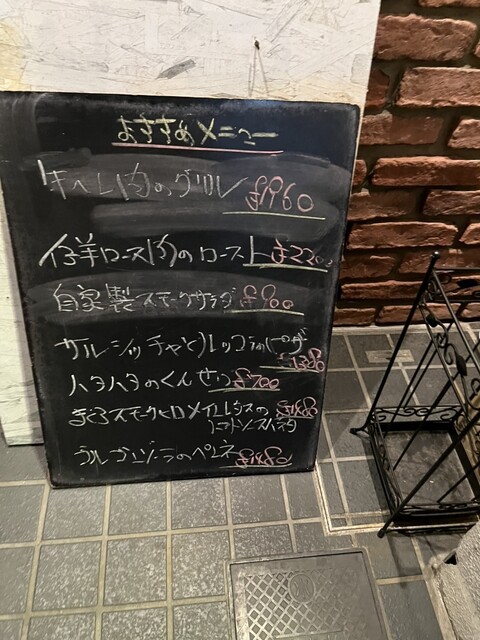 おすすめメニュー
牛ヘレ肉のグリル ¥1960
仔羊ロース肉のロースト ¥2200
自家製スモークサラダ ¥900
サルシッチャとルッコラのピザ ¥1380
ハタハタのくんせい ¥700
まぐろスモークとロメインレタスの ¥1480
トマトソースパスタ
ゴルゴンゾーラのペンネ ¥1480